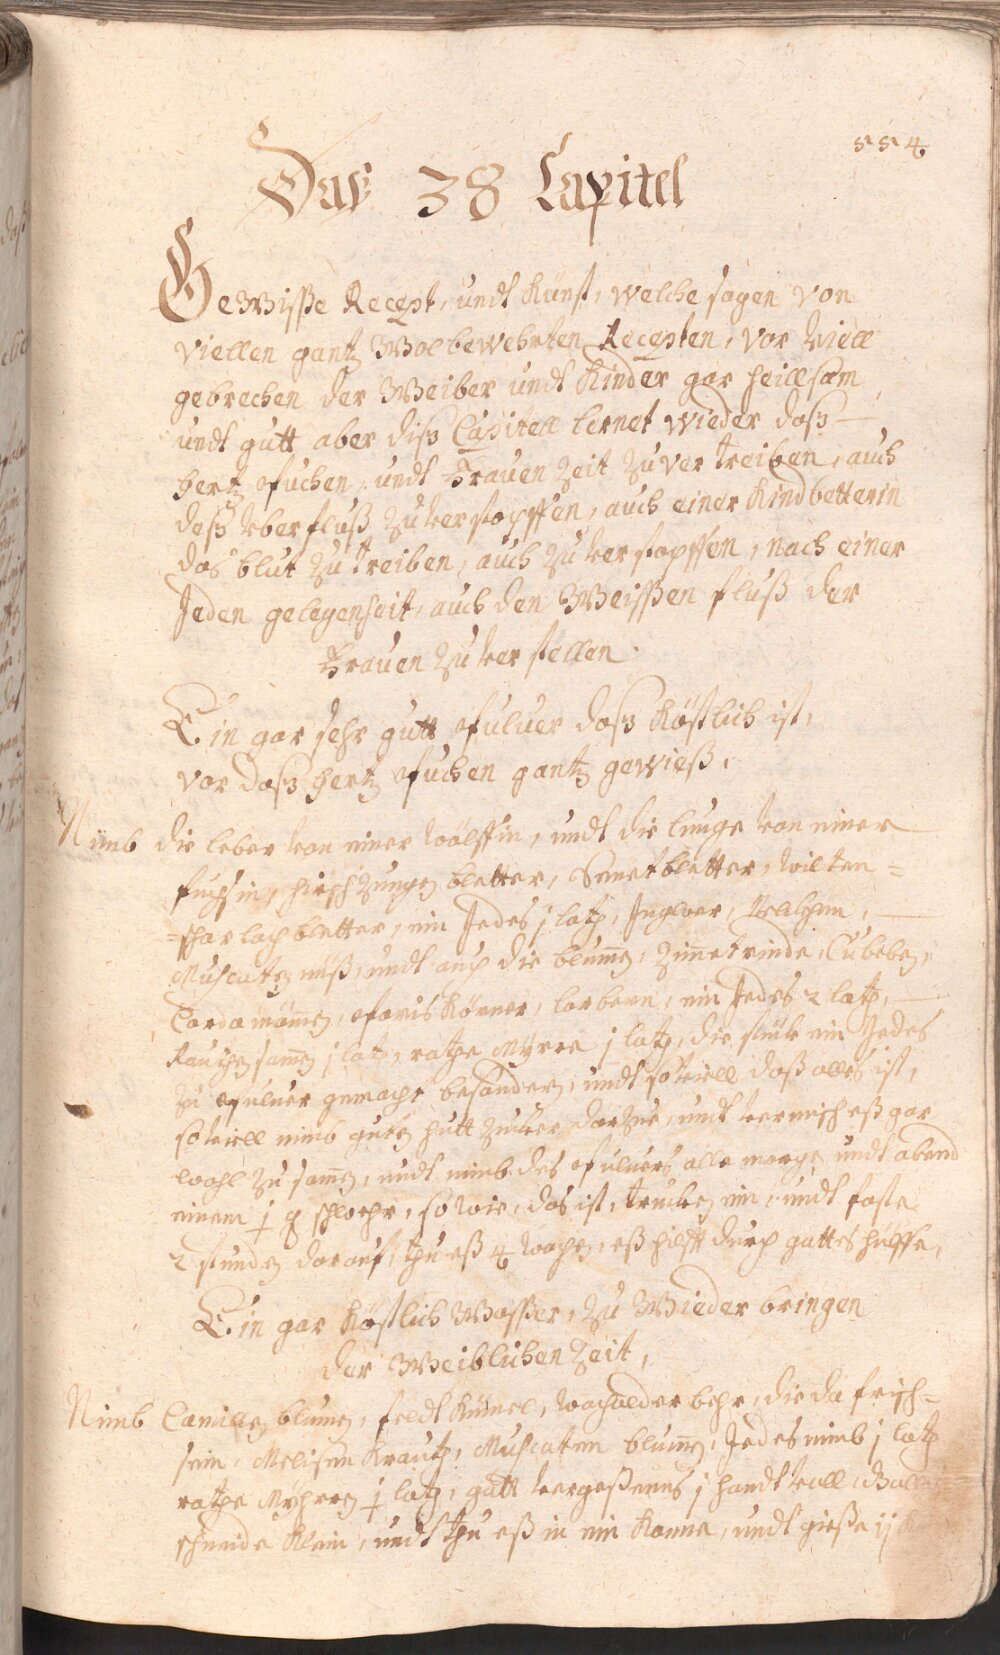 554
Das 38 Capitel
Gewisse Recept, undt Künst, welche sagen von
viellen gantz Wol bewehrten Recepten, vor viell
gebrechen der Weiber undt Kinder gar heillsam
undt gutt aber diss Capitell lernet wieder dass
hertz puchen, undt Frauen Zeit Zu ver treiben, auch
dess vberfluss Zu verstopffen, auch einer Kindbetterin
das blut Zu treiben, auch Zu verstopffen, nach einer
Jeden gelegenheit, auch den Weissen fluss der
Frauen Zu verstellen.
Ein gar sehr gutt puluer dass Köstlich ist,
vor dass hertz puchen gantz gewiess,
Nimb die leber von einer wölffin, undt die lunge von einer
füchsin, hirsch Zungen bletter, Senetbletter, wilten=
=scharlach bletter, ein Jedes j loth, Ingwer,
Muscaten nüss, undt auch die blumen, Zimmetrinde, Cubeben,
Cardamomen, paris Körner, lorbern, ein Jedes 2 loth,
Rauten samen j loth, rothe Myrre j loth, die stück ein Jedes
zu puluer gemacht besonders, undt so viell dass alles ist,
so viell nimb guten hutt Zucker darzue, undt vermisch ess gar
wohl Zu samen, undt nimb des puluers alle morgen undt abend
einem schwehr, so wie, das ist, trucken ein, undt faste
2 stunden darauf, thu ess 4 wochen, ess hilfft durch gottes hülffe,
Ein gar Köstlich Wasser, Zu Wieder bringen
der Weiblichen Zeit,
Nimb Camillen blumen, feldt Kümel, wacholder behr, die da frisch=
sein, Melisen Krauth, Muscaten blumen, Jedes nimb j loth
rothe Myhrren loth, gutt vergessenus j handt voll
schneide Klein, undt thu ess in ein Kanne, undt giesse ij